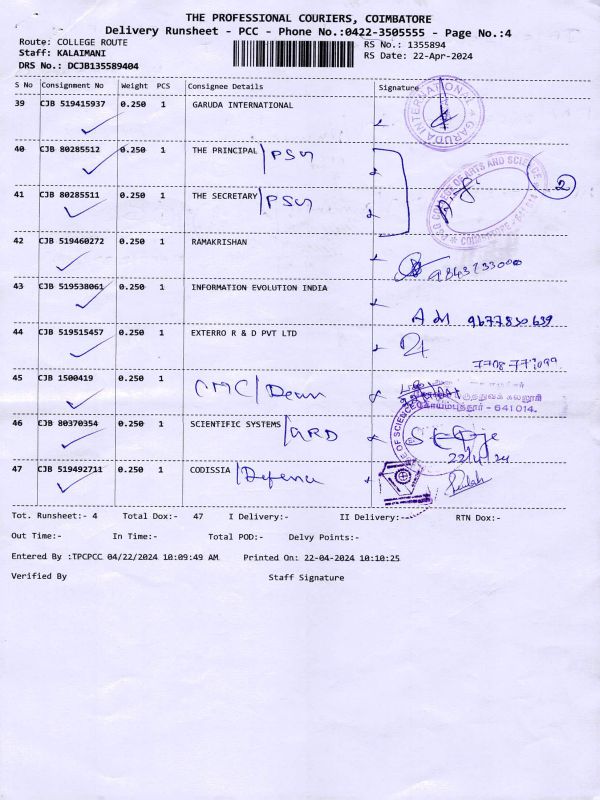 THE PROFESSIONAL COURIERS, COIMBATORE
Delivery Runsheet - PCC - Phone No.:0422-3505555 - Page No.:4
Route: COLLEGE ROUTE RS No.: 1355894
Staff: KALAIMANI RS Date: 22-Apr-2024
DRS No.: DCJB135589404
S No Consignment No Weight PCS Consignee Details Signature
39 CJB 519415937 0.250 1 GARUDA INTERNATIONAL
GARUDA INTERNATIONAL
40 CJB 80285512 0.250 1 THE PRINCIPAL PSG
41 CJB 80285511 0.250 1 THE SECRETARY PSG
COLLEGE OF ARTS AND SCIENCE
COIMBATORE - 641014
2
42 CJB 519460272 0.250 1 RAMAKRISHAN
9843233000
43 CJB 519538061 0.250 1 INFORMATION EVOLUTION INDIA
9677830639
44 CJB 519515457 0.250 1 EXTERRO R & D PVT LTD
45 CJB 1500419 0.250 1 CMC/Dean
கோயம்புத்தூர் - 641014.
46 CJB 80370354 0.250 1 SCIENTIFIC SYSTEMS/GRD
OF SCIENCE
22/4/24
47 CJB 519492711 0.250 1 CODISSIA/Defence
Tot. Runsheet:- 4 Total Dox:- 47 I Delivery:- II Delivery:- RTN Dox:-
Out Time:- In Time:- Total POD:- Delvy Points:-
Entered By :TPCPCC 04/22/2024 10:09:49 AM Printed On: 22-04-2024 10:10:25
Verified By Staff Signature